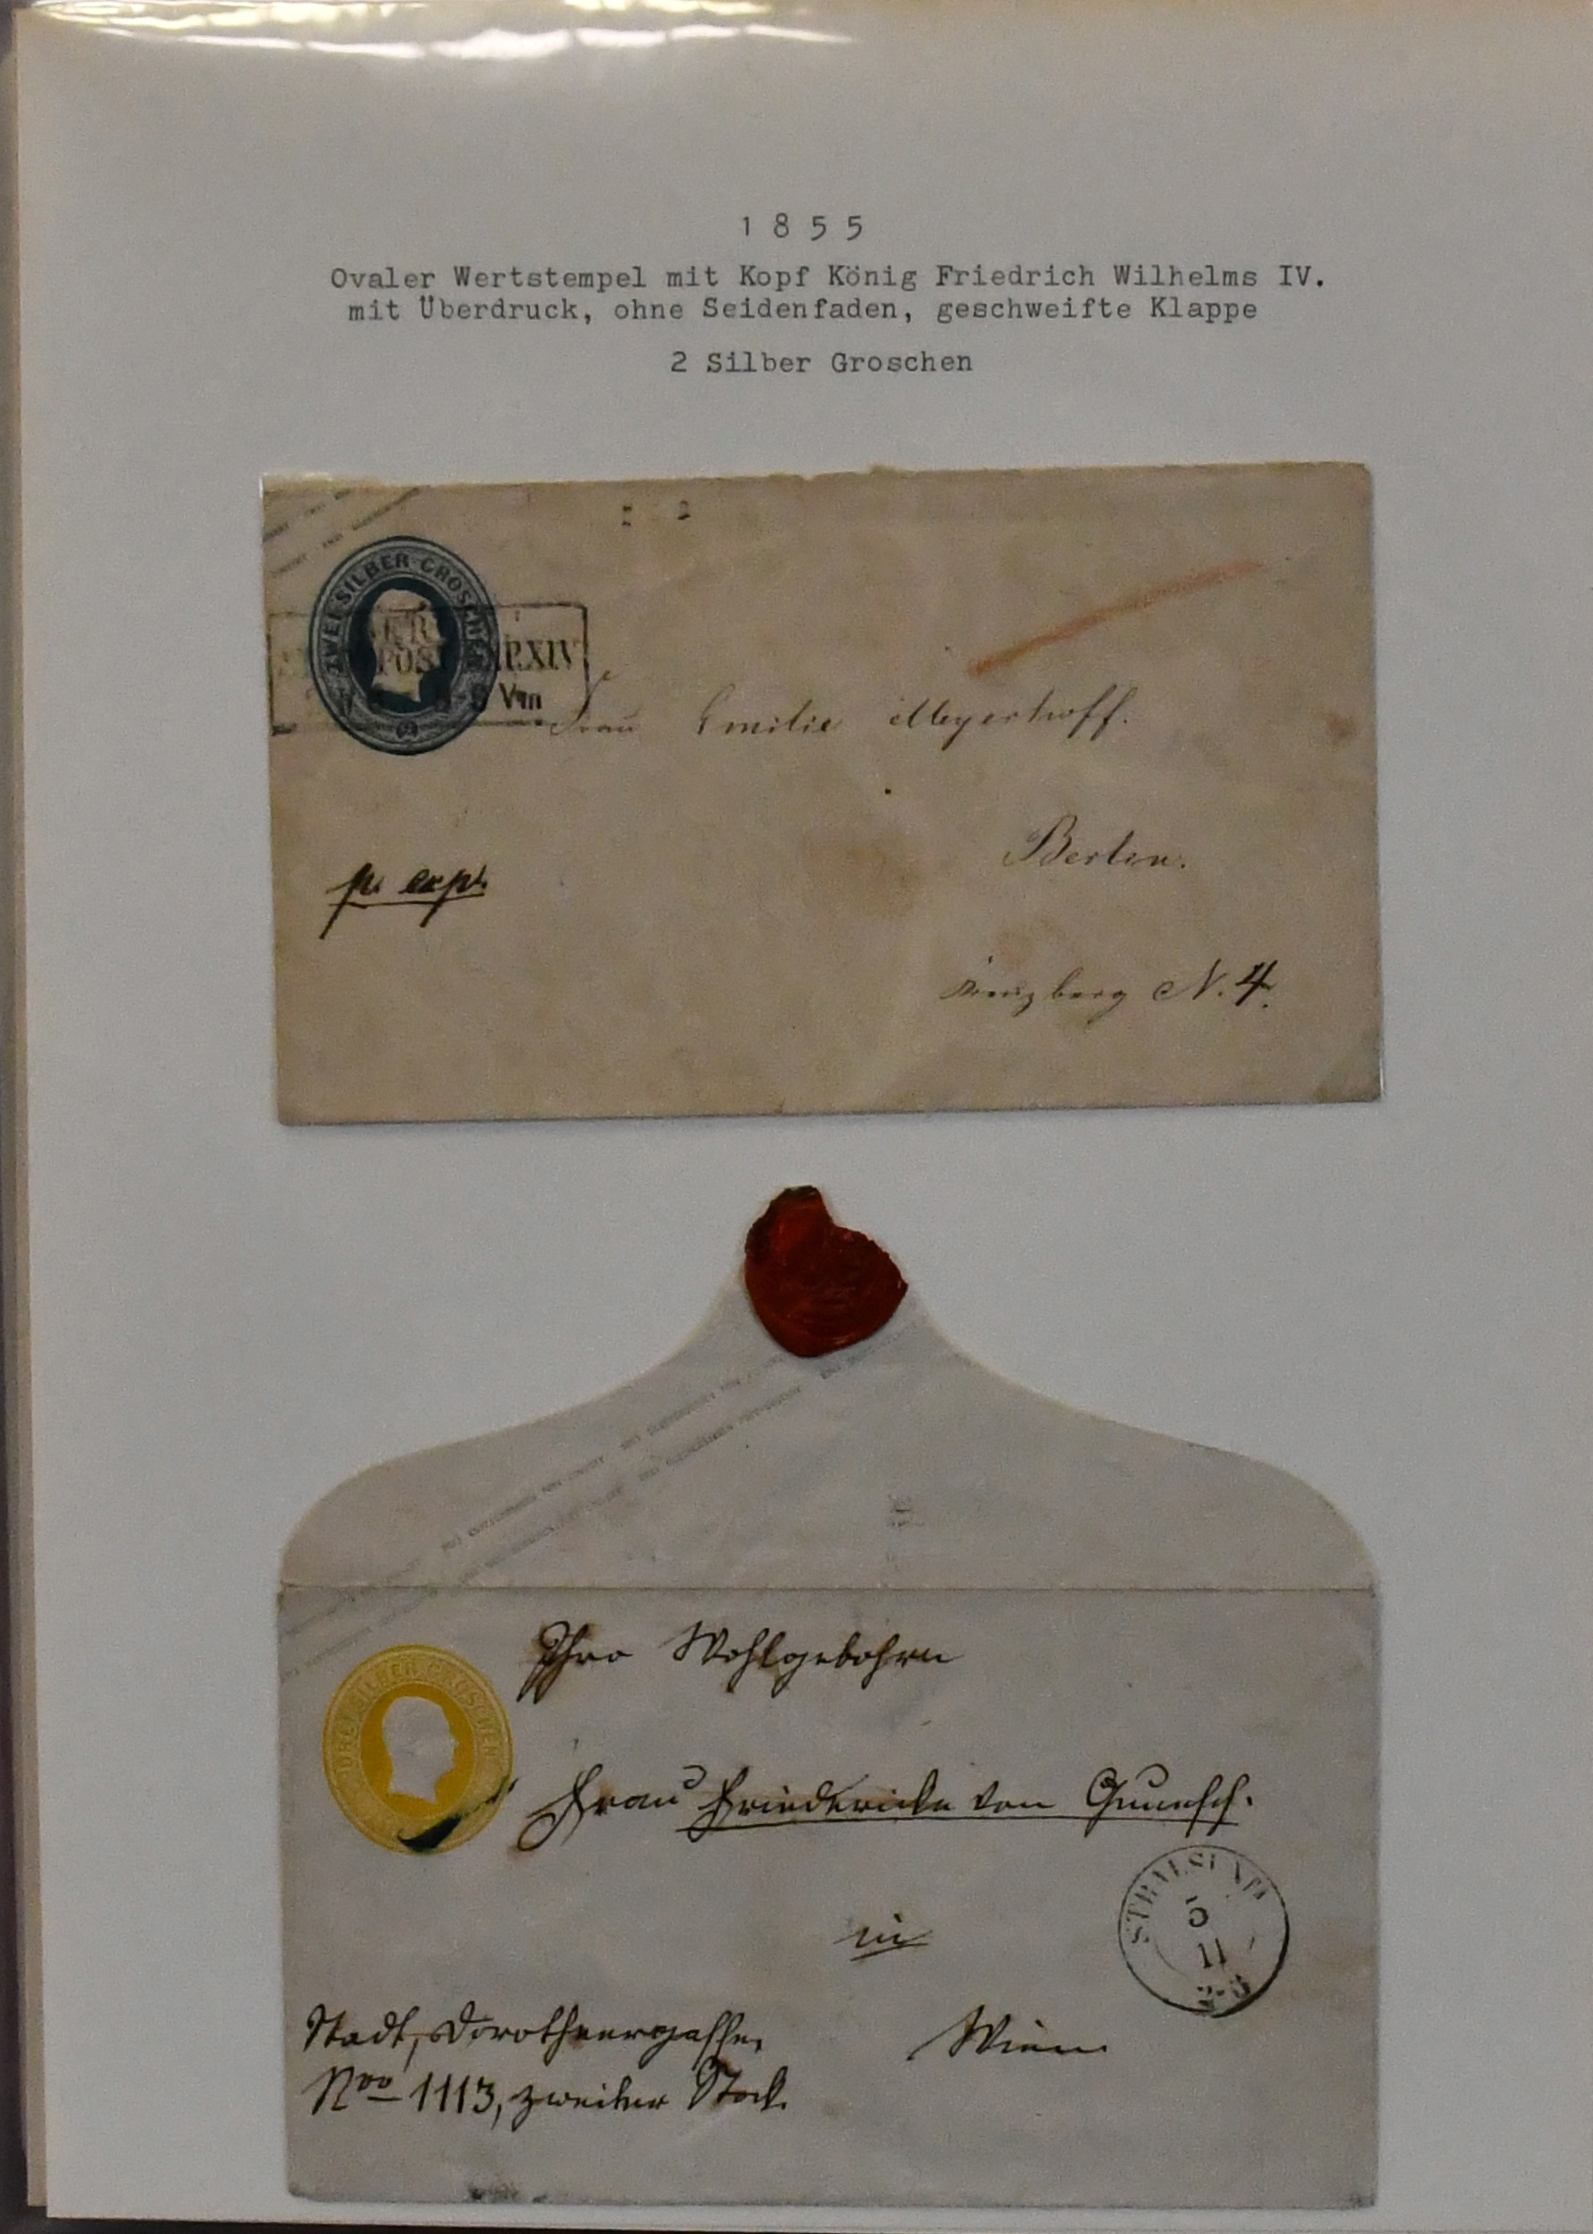 1855
Ovaler Wertstempel mit Kopf König Friedrich Wilhelms IV.
mit Überdruck, ohne Seidenfaden, geschweifte Klappe
2 Silber Groschen
ZWEI SILBER GROSCHEN
P.XIV
Vm
Frau Emilie Meyerhoff.
Berlin.
p. expr.
Kreuzberg N. 4.
DREI SILBER GROSCHEN
Ihro Wohlgebohrn
Frau Friedericke von
STRALSUND
5
11
2-3
in
Stadt, Dorotheergasse,
Wien
Nro 1113, zweiter Stock.